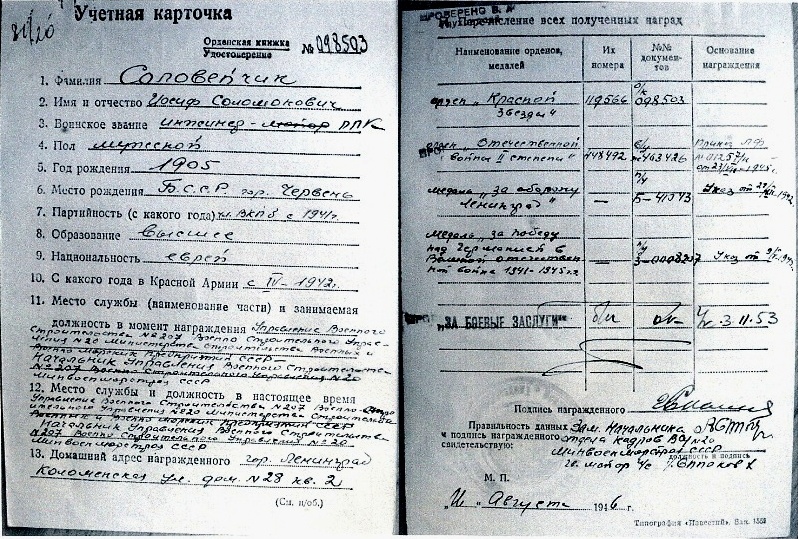 Учетная карточка
Орденская книжка
Удостоверение № 098503
1. Фамилия Соловейчик
2. Имя и отчество Иосиф Соломонович
3. Воинское звание инженер-майор
4. Пол мужской
5. Год рождения 1905
6. Место рождения Б.С.С.Р. гор. Червень
7. Партийность (с какого года) чл. ВКПб с 1941г.
8. Образование высшее
9. Национальность еврей
10. С какого года в Красной Армии с IV-1942г.
11. Место службы (наименование части) и занимаемая
должность в момент награждения Управление Военного
Строительства № 207 Военно Строительного Управ-
ления № 20 Министерства строительства Военных и
Военно Морских Предприятий СССР-
Начальник Управления Военного Строительства
№ 207 Военно-Строительного Управления № 20
Минвоенморстроя СССР
12. Место службы и должность в настоящее время
Управление Военного Строительства № 207 Военно-Строи-
тельного Управления № 20 Министерства Строительства
Военных и Военно Морских Предприятий СССР
Начальник Управления Военного Строительства
№ 207 Военно-Строительного Управления № 20
Минвоенморстроя СССР
13. Домашний адрес награжденного гор. Ленинград
Коломенская ул. дом. № 28 кв. 2
(См. н/об.)
ПРОВЕРЕНО
Перечисление всех полученных наград
Наименование орденов, медалей
Их номера
№№ документов
Основание награждения
орден „Красной Звезды" 119566 о/к 098503
орден „Отечественной войны II степени" 448492 № 463426 Приказ
медаль „за оборону Ленинграда" — Указ от
Медаль „за победу над Германией в Великой отечественной войне 1941-1945г.г. — Указ от
„ЗА БОЕВЫЕ ЗАСЛУГИ" б/н 3.11.53
Подпись награжденного
Правильность данных Зам. Начальника
и подпись награжденного отдела кадров ВСУ № 20
свидетельствую: Минвоенморстроя СССР
должность и подпись
гв. майор
М. П.
Августа 1946 г.
Типография «Известий». Зак. 1559